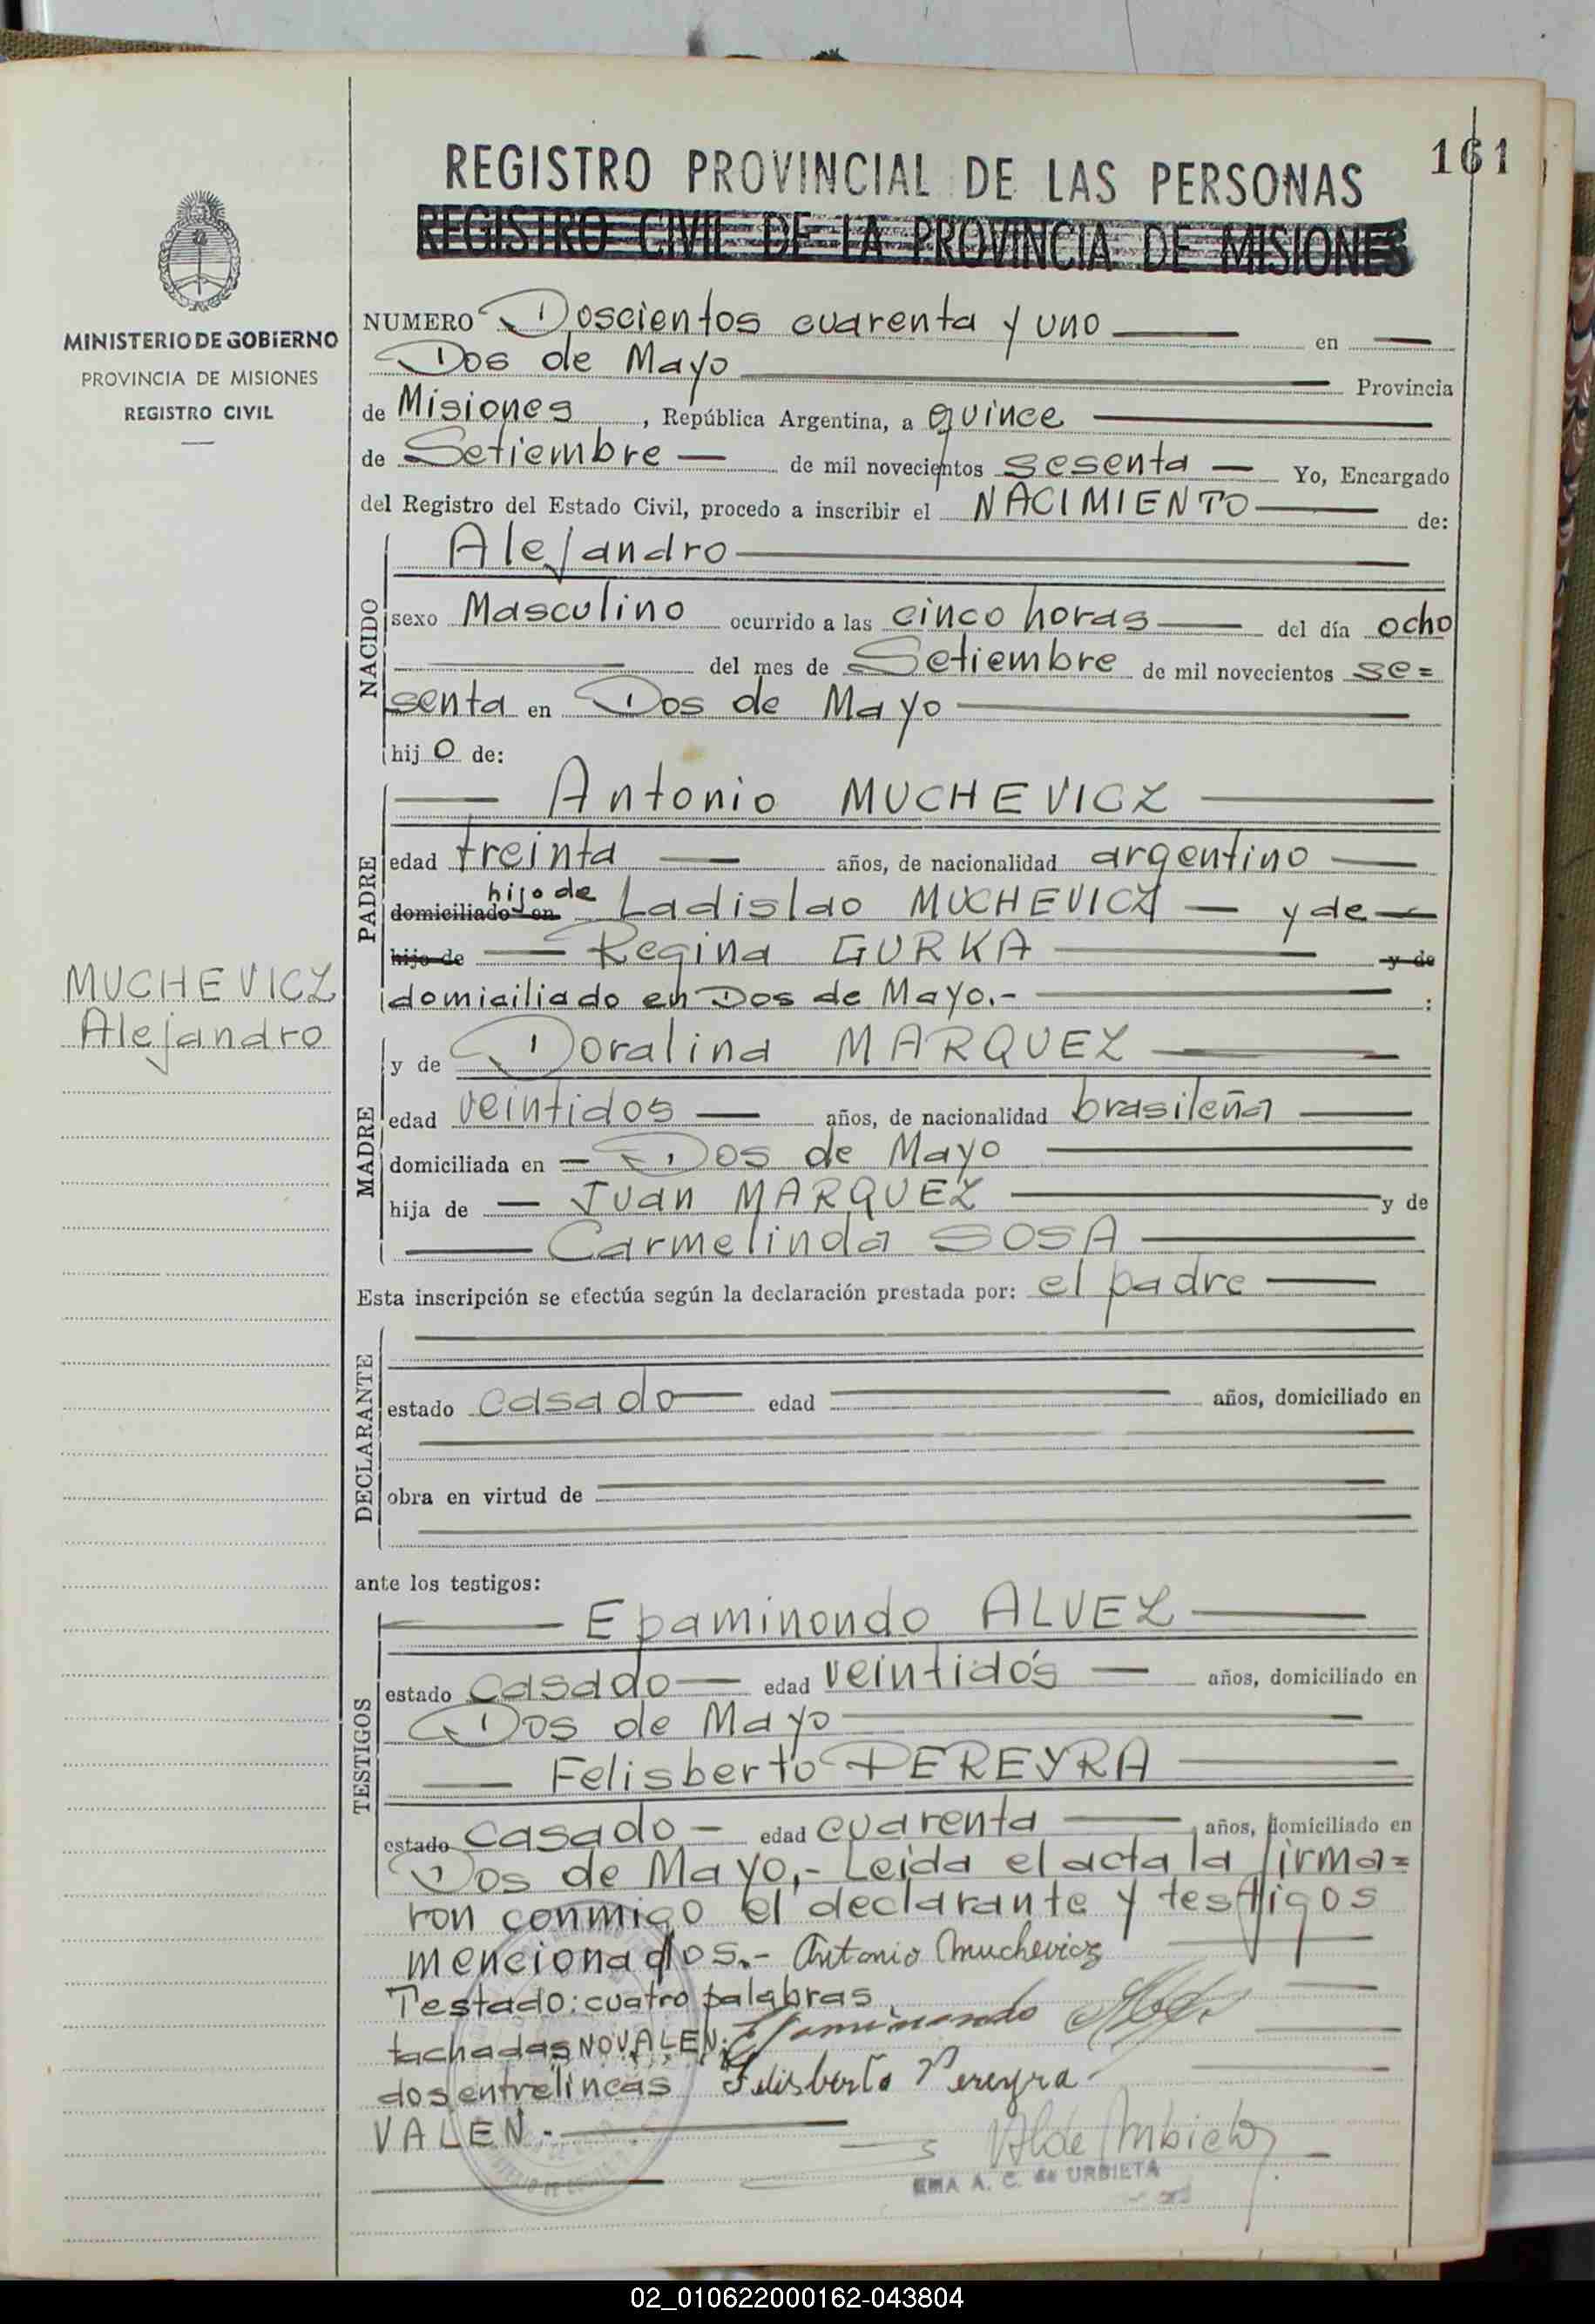 161
REGISTRO PROVINCIAL DE LAS PERSONAS
REGISTRO CIVIL DE LA PROVINCIA DE MISIONES
MINISTERIO DE GOBIERNO
PROVINCIA DE MISIONES
REGISTRO CIVIL
NUMERO Doscientos cuarenta y uno en
Dos de Mayo Provincia
de Misiones, República Argentina, a quince
de Setiembre de mil novecientos sesenta Yo, Encargado
del Registro del Estado Civil, procedo a inscribir el NACIMIENTO de:
NACIDO
Alejandro
sexo Masculino ocurrido a las cinco horas del día ocho
del mes de Setiembre de mil novecientos se=
senta en Dos de Mayo
hijo de:
PADRE
Antonio MUCHEVICZ
edad treinta años, de nacionalidad argentino
hijo de
domiciliado en Ladislao MUCHEVICZ y de
hijo de Regina GURKA y de
domiciliado en Dos de Mayo.- :
MUCHEVICZ
Alejandro
MADRE
y de Doralina MARQUEZ
edad veintidos años, de nacionalidad brasileña
domiciliada en Dos de Mayo
hija de Juan MARQUEZ y de
Carmelinda SOSA
Esta inscripción se efectúa según la declaración prestada por: el padre
DECLARANTE
estado casado edad años, domiciliado en
obra en virtud de
ante los testigos:
TESTIGOS
Epaminondo ALVEZ
estado casado edad veintidós años, domiciliado en
Dos de Mayo
Felisberto PEREYRA
estado casado edad cuarenta años, domiciliado en
Dos de Mayo,- Leida el acta la firma=
ron conmigo el declarante y testigos
mencionados.- Antonio Muchevicz
Testado: cuatro palabras
tachadas NO VALEN: Epaminondo
dos entrelineas Felisberto Pereyra
VALEN.-
EMA A. C. de URBIETA
02_010622000162-043804